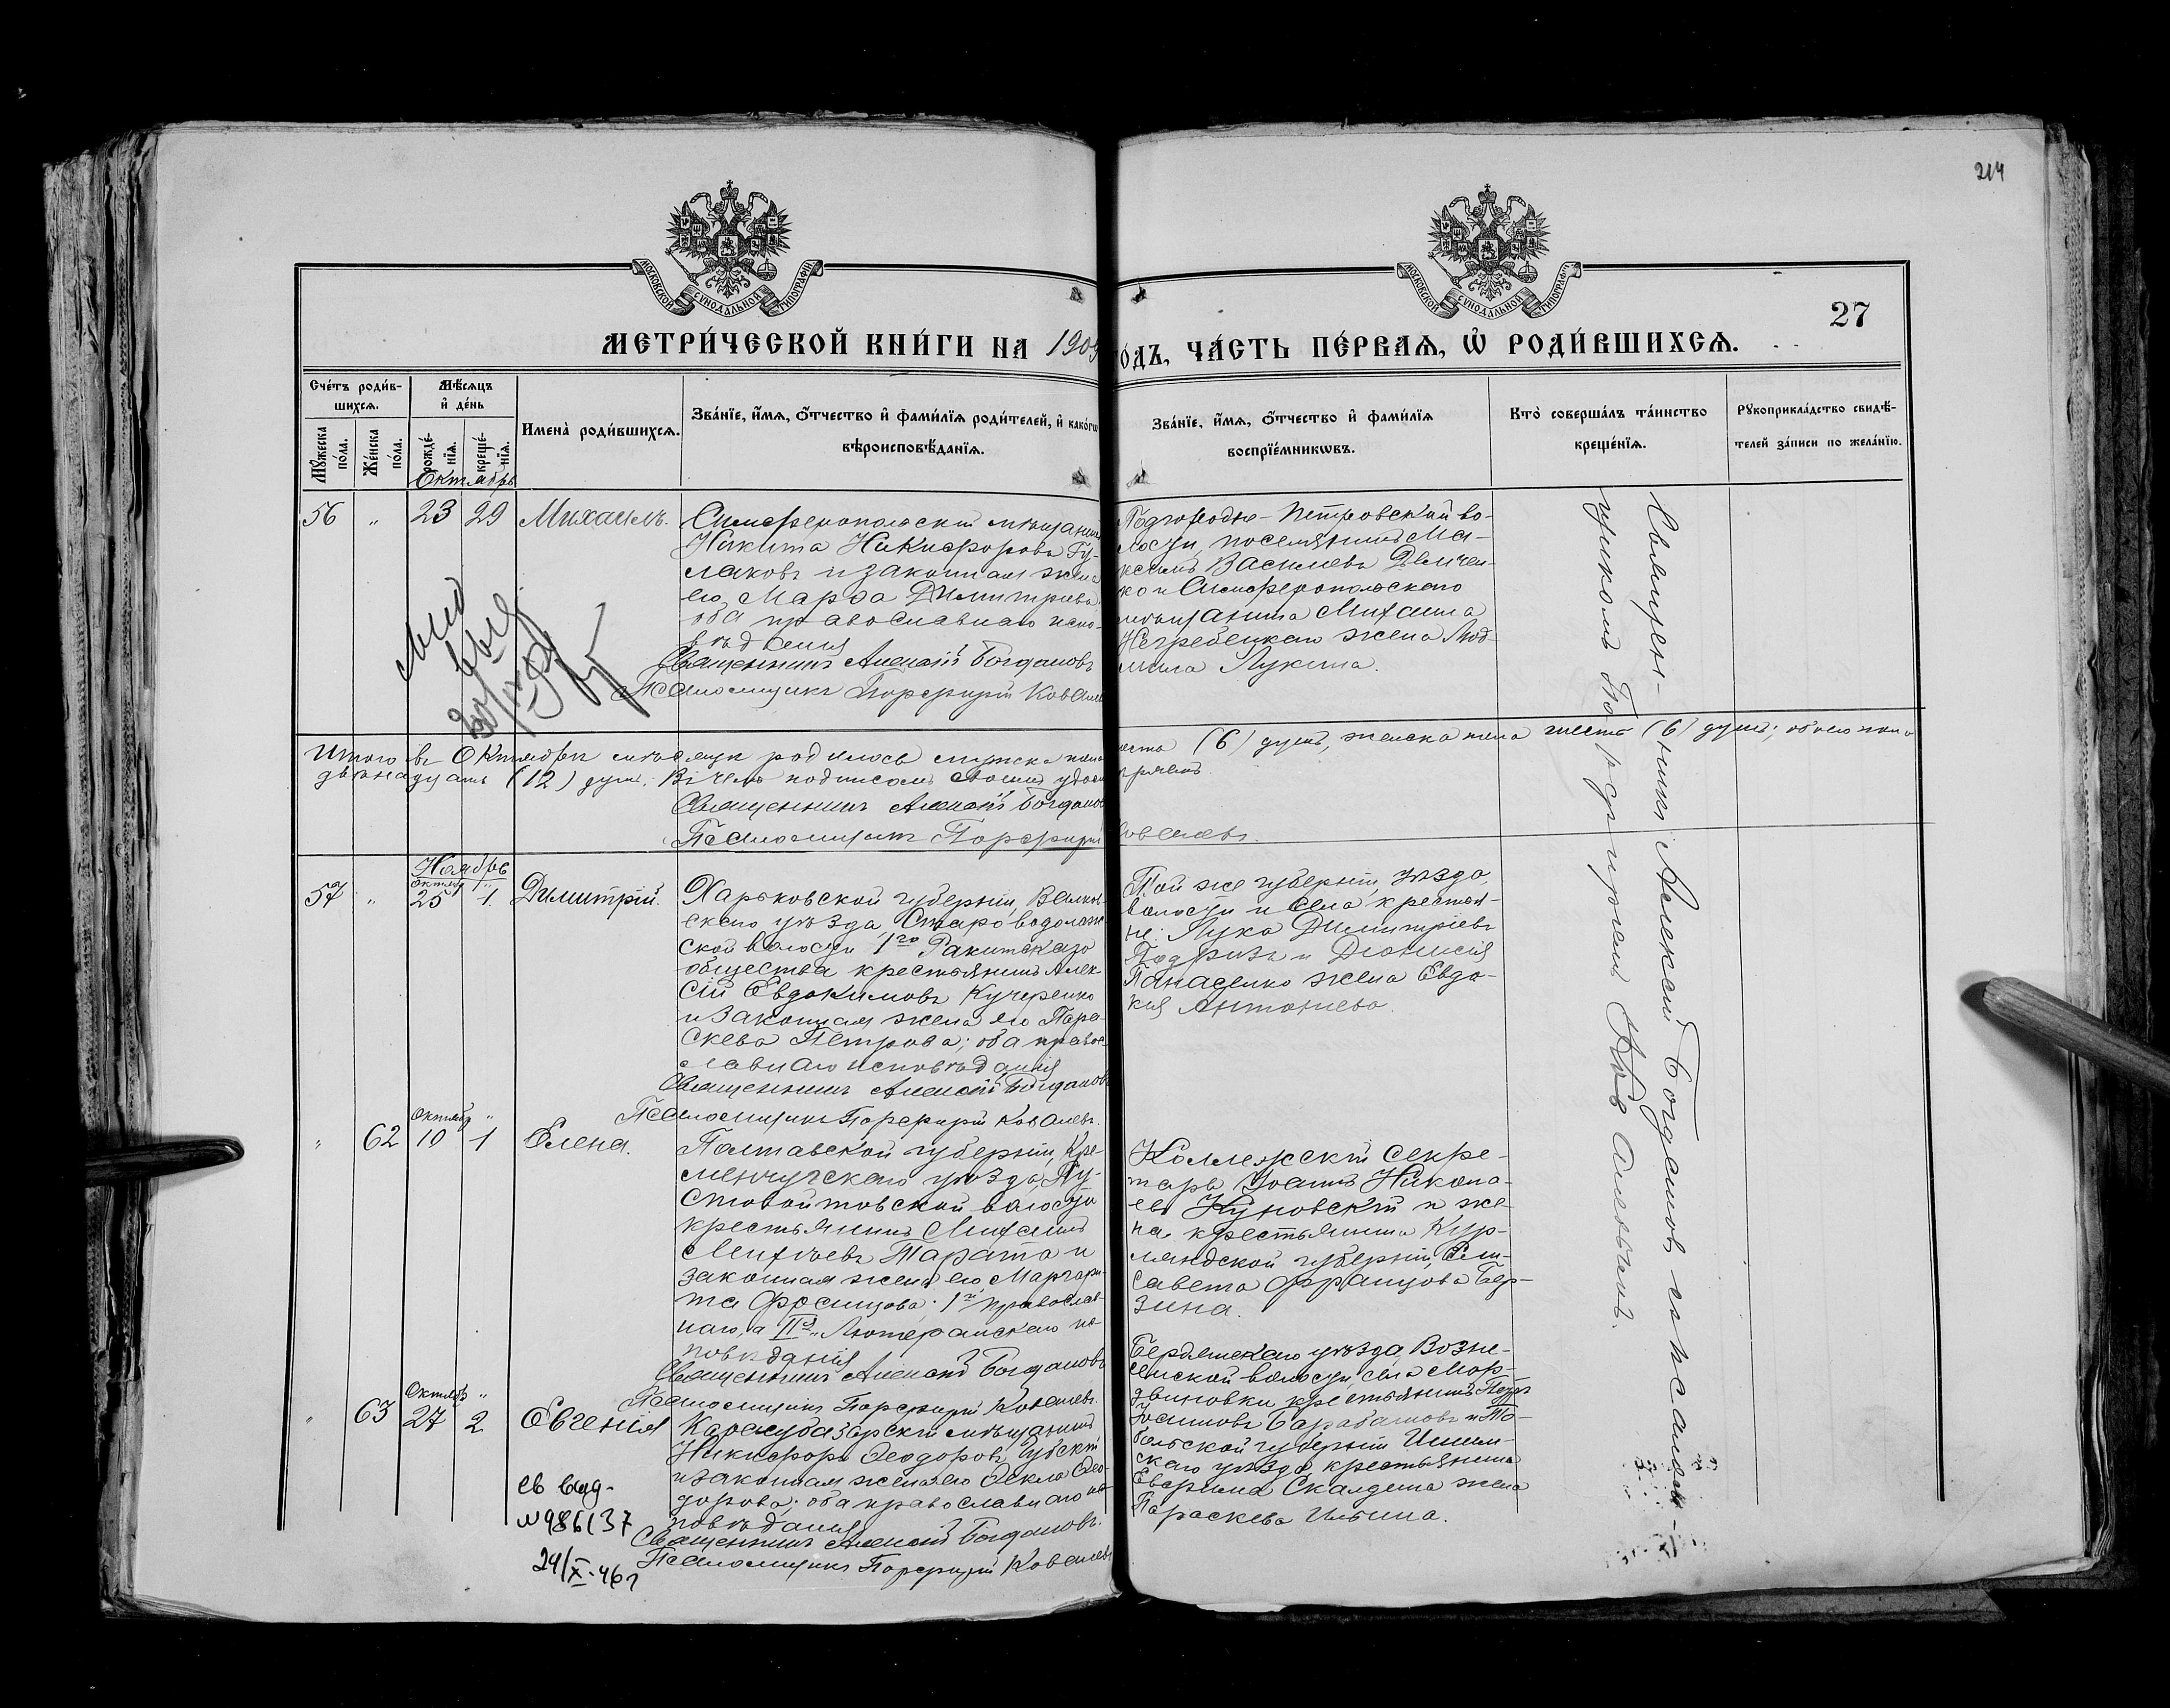 214
27
МОСКОВСКОЙ СѴНОДАЛЬНОЙ ТИПОГРАФІИ
МОСКОВСКОЙ СѴНОДАЛЬНОЙ ТИПОГРАФІИ
МЕТРИ́ЧЕСКОЙ КНИ́ГИ НА 1909
О́ДЪ, ЧА́СТЬ ПЕ́РВАѦ, Ѡ҆ РОДИ́ВШИХСѦ.
Сче́тъ роди́в-
шихсѧ.
Мꙋ́жеска по́ла.
Же́нска по́ла.
Мѣ́сѧцъ
и҆ де́нь
рожде́-нїѧ.
креще́-нїѧ.
Имена̀ роди́вшихсѧ.
Зва́нїе, и҆́мѧ, ѻ҆́тчество и҆ фами́лїѧ роди́телей, и҆ како́гѡ
вѣроисповѣ́данїѧ.
Зва́нїе, и҆́мѧ, ѻ҆́тчество и҆ фами́лїѧ
воспрїе́мникѡвъ.
Кто̀ соверша́лъ та́инство
креще́нїѧ.
Рꙋкоприкла́дство свидѣ́-
телей за́писи по жела́нїю.
Октябрь
56 " 23 29 Михаилъ.
Симферопольскій мѣщанинъ
Никита Никифоровъ Гу-
лаковъ и законная жена
его Марѳа Димитріева,
оба православнаго испо-
вѣданія
Священникъ Алексій Богдановъ
Псаломщикъ Порфирій Ковалевъ
Подгородне-Петровской во-
лости, поселянинъ Ма-
ксимъ Васильевъ
ко и Симферопольскаго
мѣщанина Михаила
Негребецкаго жена Люд-
мила Лукина.
Итого въ Октябрѣ мѣсяцѣ родилось мужска пола
шесть (6) душъ, женска пола шесть (6) душъ; обоего пола
двѣнадцать (12) душъ. Въ чемъ подписомъ своимъ удосто
вѣряемъ
Священникъ Алексій Богдановъ
Псаломщикъ Порфирій
Ковалевъ.
Ноябрь
Октябр "
57 " 25 1 Димитрій.
Харьковской губерніи, Валков-
скаго уѣзда, Староводолаж-
ской волости 1го Ракитскаго
общества крестьянинъ Алек-
сій Евдокимовъ Кучеренко
и законная жена его Пара-
скева Петрова; оба право-
славнаго исповѣданія
Священникъ Алексій Богдановъ
Псаломщикъ Порфирій Ковалевъ.
Той же губерніи, уѣзда,
волости и села крестья-
не: Лука Димитріевъ
и Діонисія
Панасенко жена Евдо-
кія Антоніева.
Октябр "
" 62 10 1 Елена.
Полтавской губерніи, Кре-
менчугскаго уѣзда, Пу-
стовойтовской волости
крестьянинъ Михаилъ
Тарата и
законная жена его Маргари-
та Францова; 1й православ-
наго, а IIя Лютеранскаго ис-
повѣданія
Священникъ Алексій Богдановъ
Псаломщикъ Порфирій Ковалевъ.
Коллежскій секре-
тарь Іоаннъ Никола-
евъ Куновскій и же-
на крестьянина Кур-
ляндской губерніи, Ели-
савета Францова Бер-
зина.
Октябр "
" 63 27 2 Евгенія
Карасубазарскій мѣщанинъ
Никифоръ Ѳеодоровъ Губскій
и законная жена его Ѳекла Ѳео-
дорова; оба православнаго ис-
повѣданія
Священникъ Алексій Богдановъ.
Псаломщикъ Порфирій Ковалевъ
Бердянскаго уѣзда, Возне-
сенской волости, села Мор-
двиновки крестьянинъ Петръ
Іоанновъ Барабашовъ и То-
больской губерніи Ишим-
скаго уѣзда крестьянина
жена
Параскева Ильина.
св выд-
№986137
24/X-46г
Священ-
никъ Алексій Богдановъ съ псалом-
щикомъ Порфиріемъ Ковалевымъ.